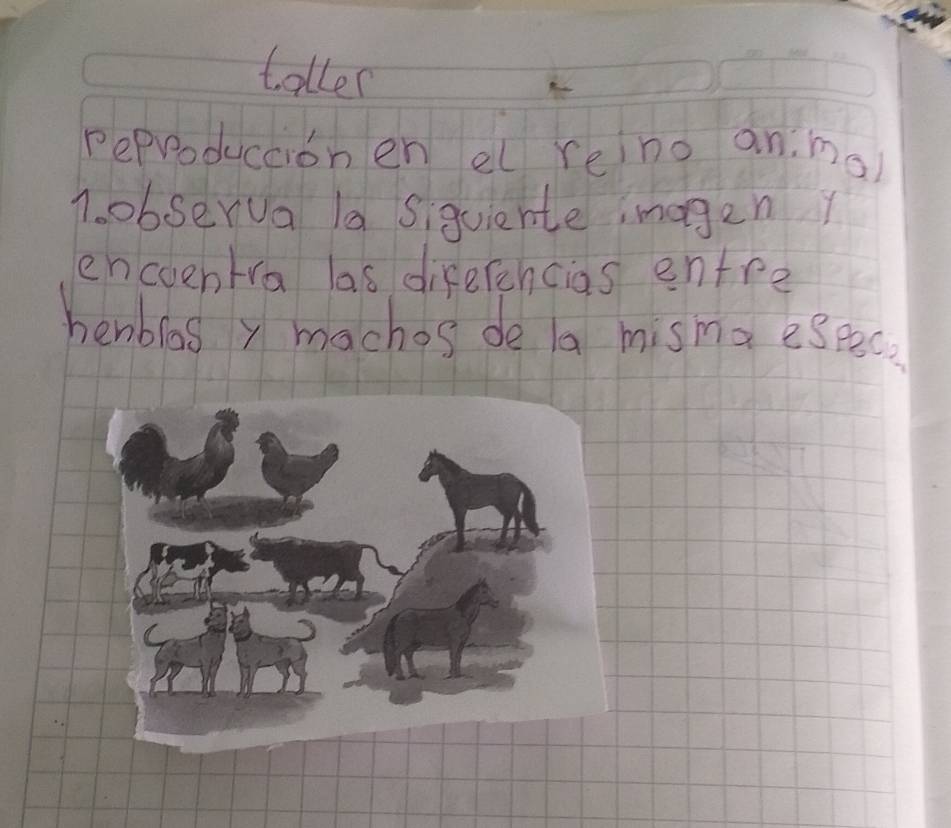 taller
reproducción en el reino animal
1. observa la siguiente imagen y
encuentra las diferencias entre
henbras y machos de la misma especie.